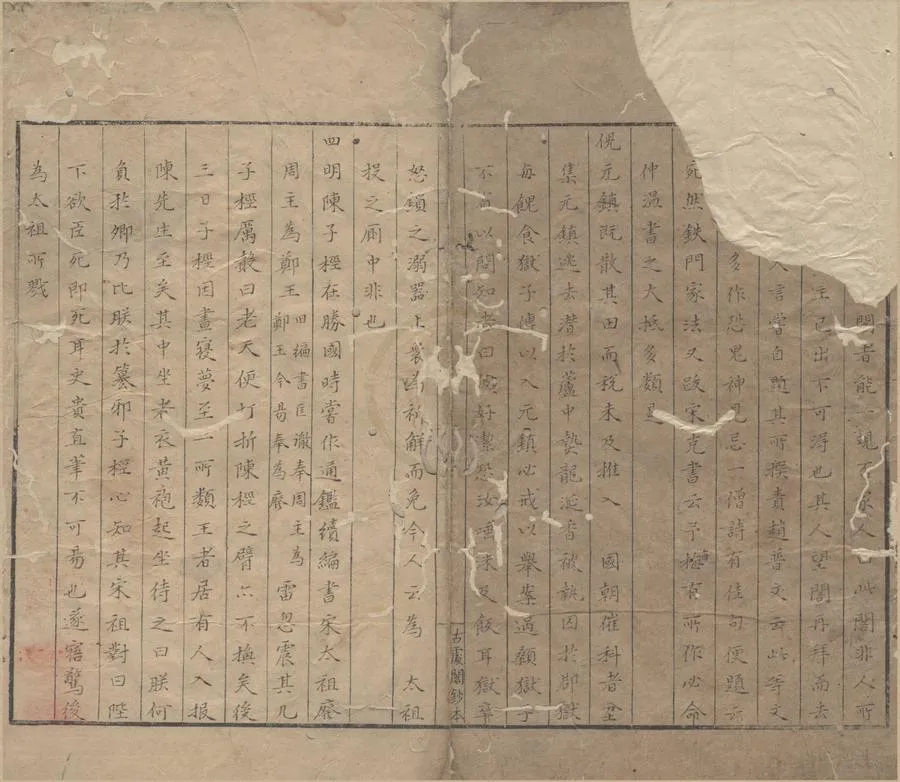 閣者能一覩不人曰此閣非人所
已出不可得也其人望閣再拜而去
人言嘗自題其所撰責趙普文云此等文
多作恐鬼神見忌一僧詩有佳句便題云
宛然鉄門家法又跋宋克書云予梅有所作必命
每
仲温書之大抵多類是
倪元鎮既散其田而稅未及推入 國朝催科者坌
集元鎮逃去潜於蘆中爇龍涎香被執囚於郡獄
每餽食獄子傳以入元鎮必戒以舉案過額獄子
不以問知者曰好潔恐汝唾沫及飯耳獄卒
古虞閣鈔本
怒鎖之溺器上衆為祈解而免今人云為 太祖
投之厠中非也
四明陳子桱在勝國時嘗作通鑑續編書宋太祖廢
周主為鄭王田編書匡徹奉周主為鄭王今易奉為廢雷忽震其几
子桱厲聲曰老天便打折陳桱之臂亦不換矣後
三日子桱因晝寝夢至一所類王者居有人入報
陳先生至矣其中坐者衣黄袍起坐待之曰朕何
負於卿乃比朕於簒邪子桱心知其宋祖對曰陛
下欲臣死即死耳史貴直筆不可易也遂寤驚後
為太祖所戮